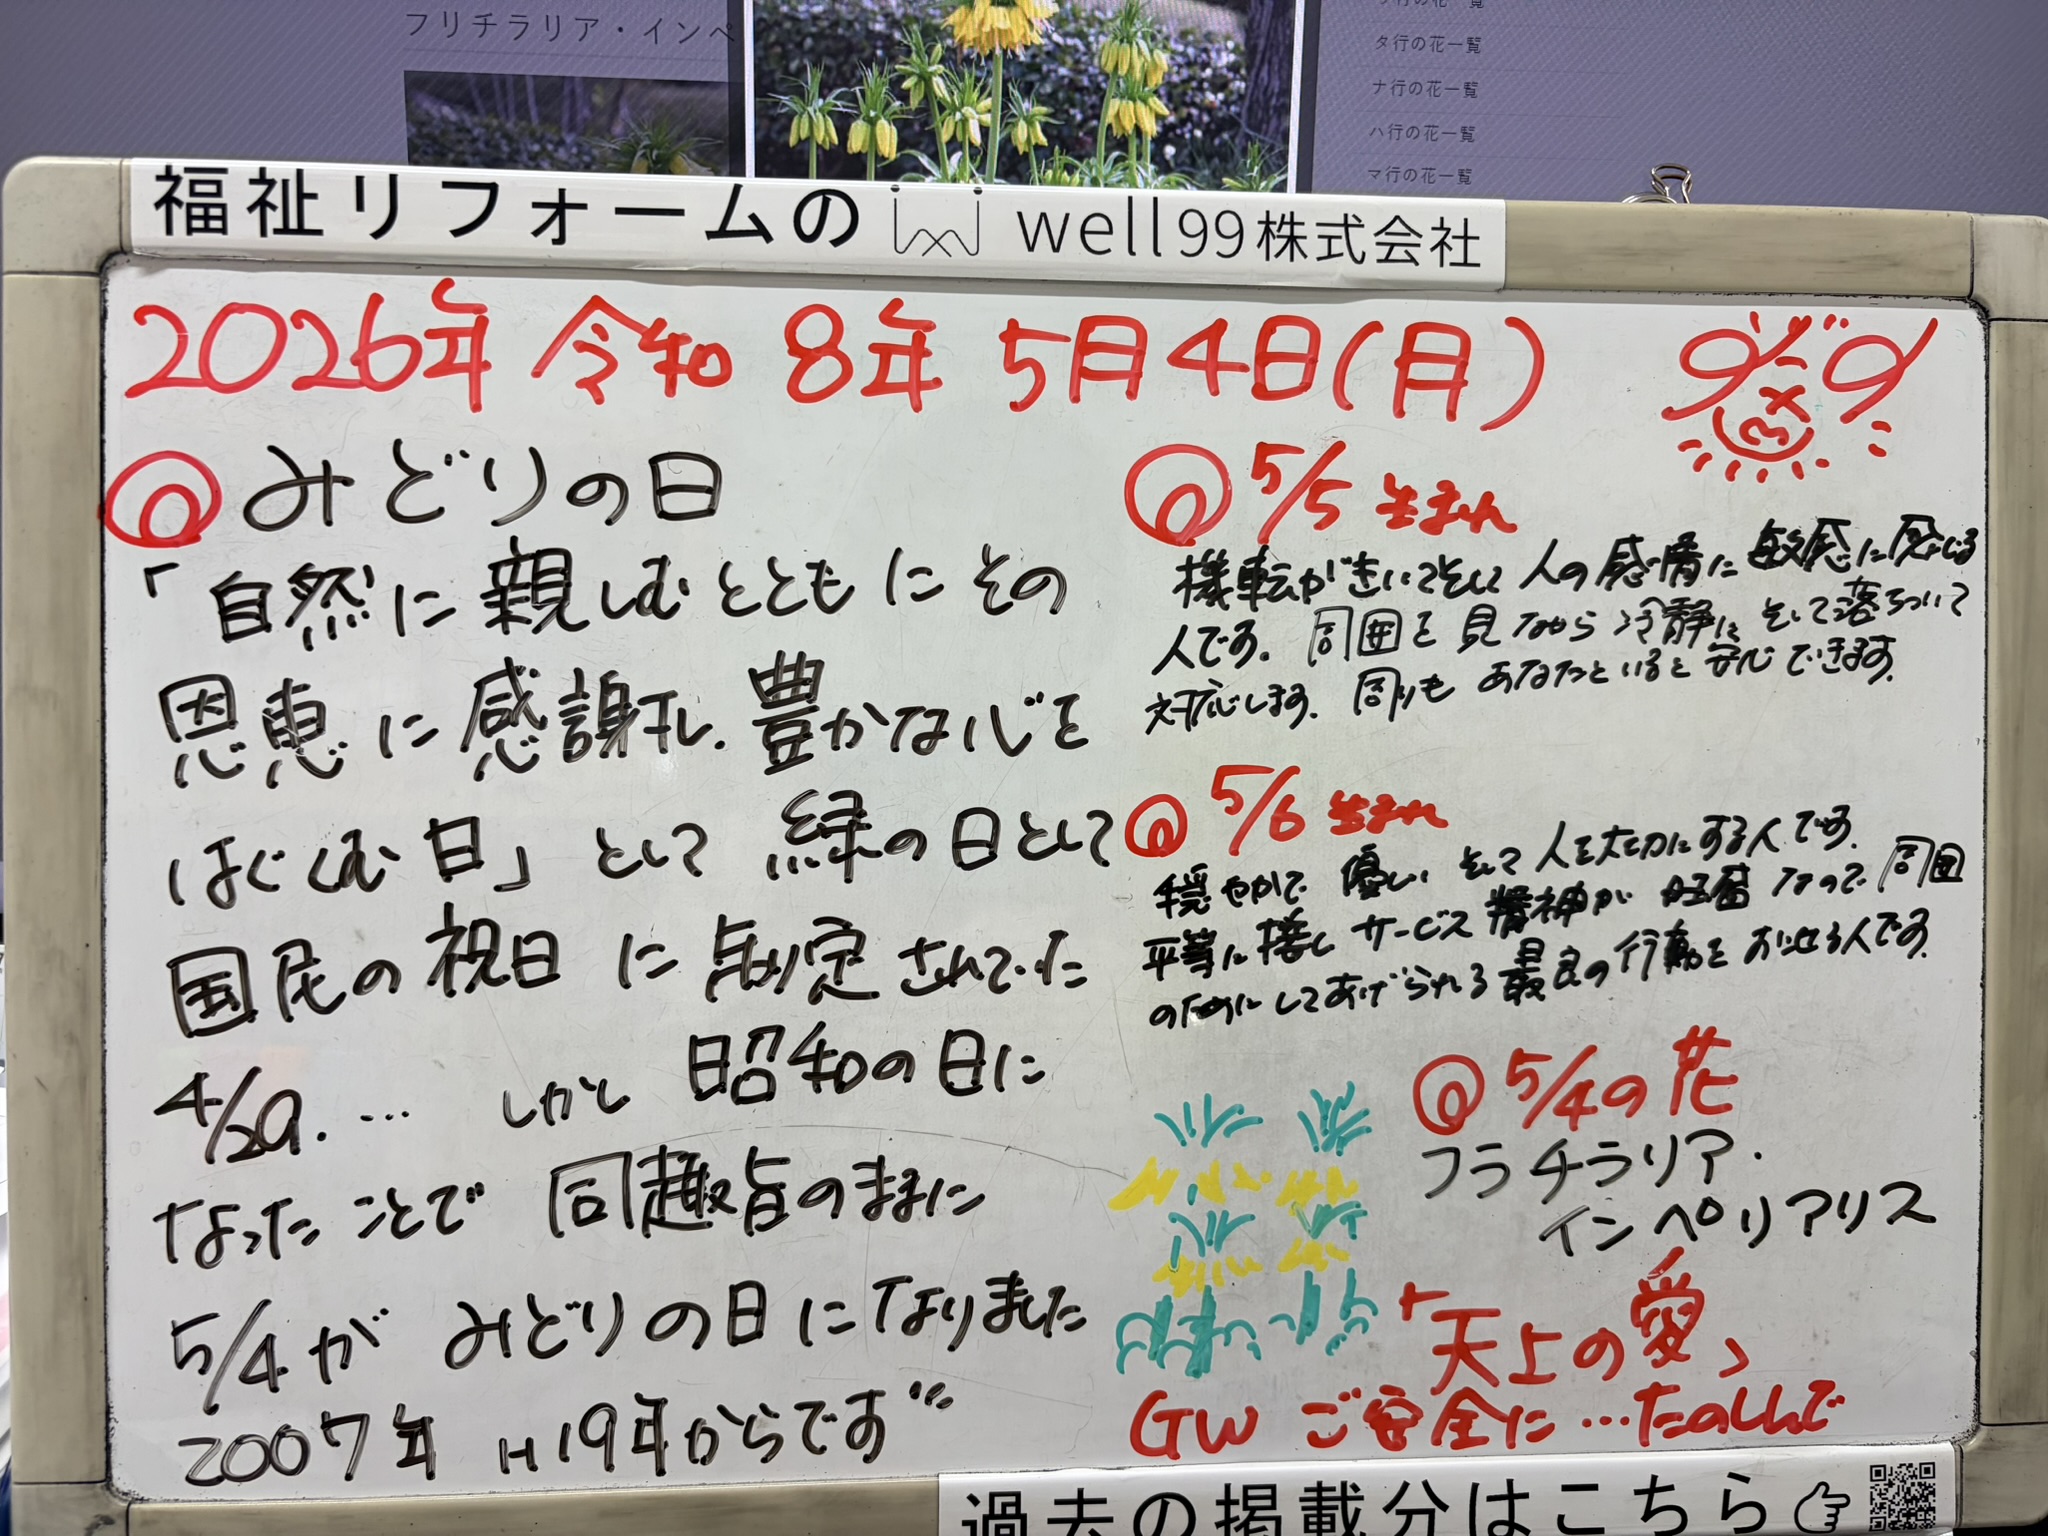 フリチラリア・インペ
タ行の花一覧
ナ行の花一覧
ハ行の花一覧
マ行の花一覧
福祉リフォームの well99株式会社
2026年 令和8年 5月4日(月)
みどりの日
「自然に親しむとともにその
恩恵に感謝し、豊かな心を
はぐくむ日」として緑の日として
国民の祝日に制定されていた
4/29.… しかし昭和の日に
なったことで同趣旨のままに
5/4がみどりの日になりました
2007年 H19年からです
5/5生まれ
機転がきいてそして人の感情に敏感に感じる
人です。周囲を見ながら冷静にそして落ちついて
対応します。周りもあなたといると安心できます。
5/6生まれ
穏やかで優しいそして人を大切にする人です。
平等に接しサービス精神が旺盛なので周囲
のためにしてあげられる最良の行動をお此る人です。
5/4の花
フラチラリア・
インペリアリス
「天上の愛」
GWご安全に…たのしんで
過去の掲載分はこちら